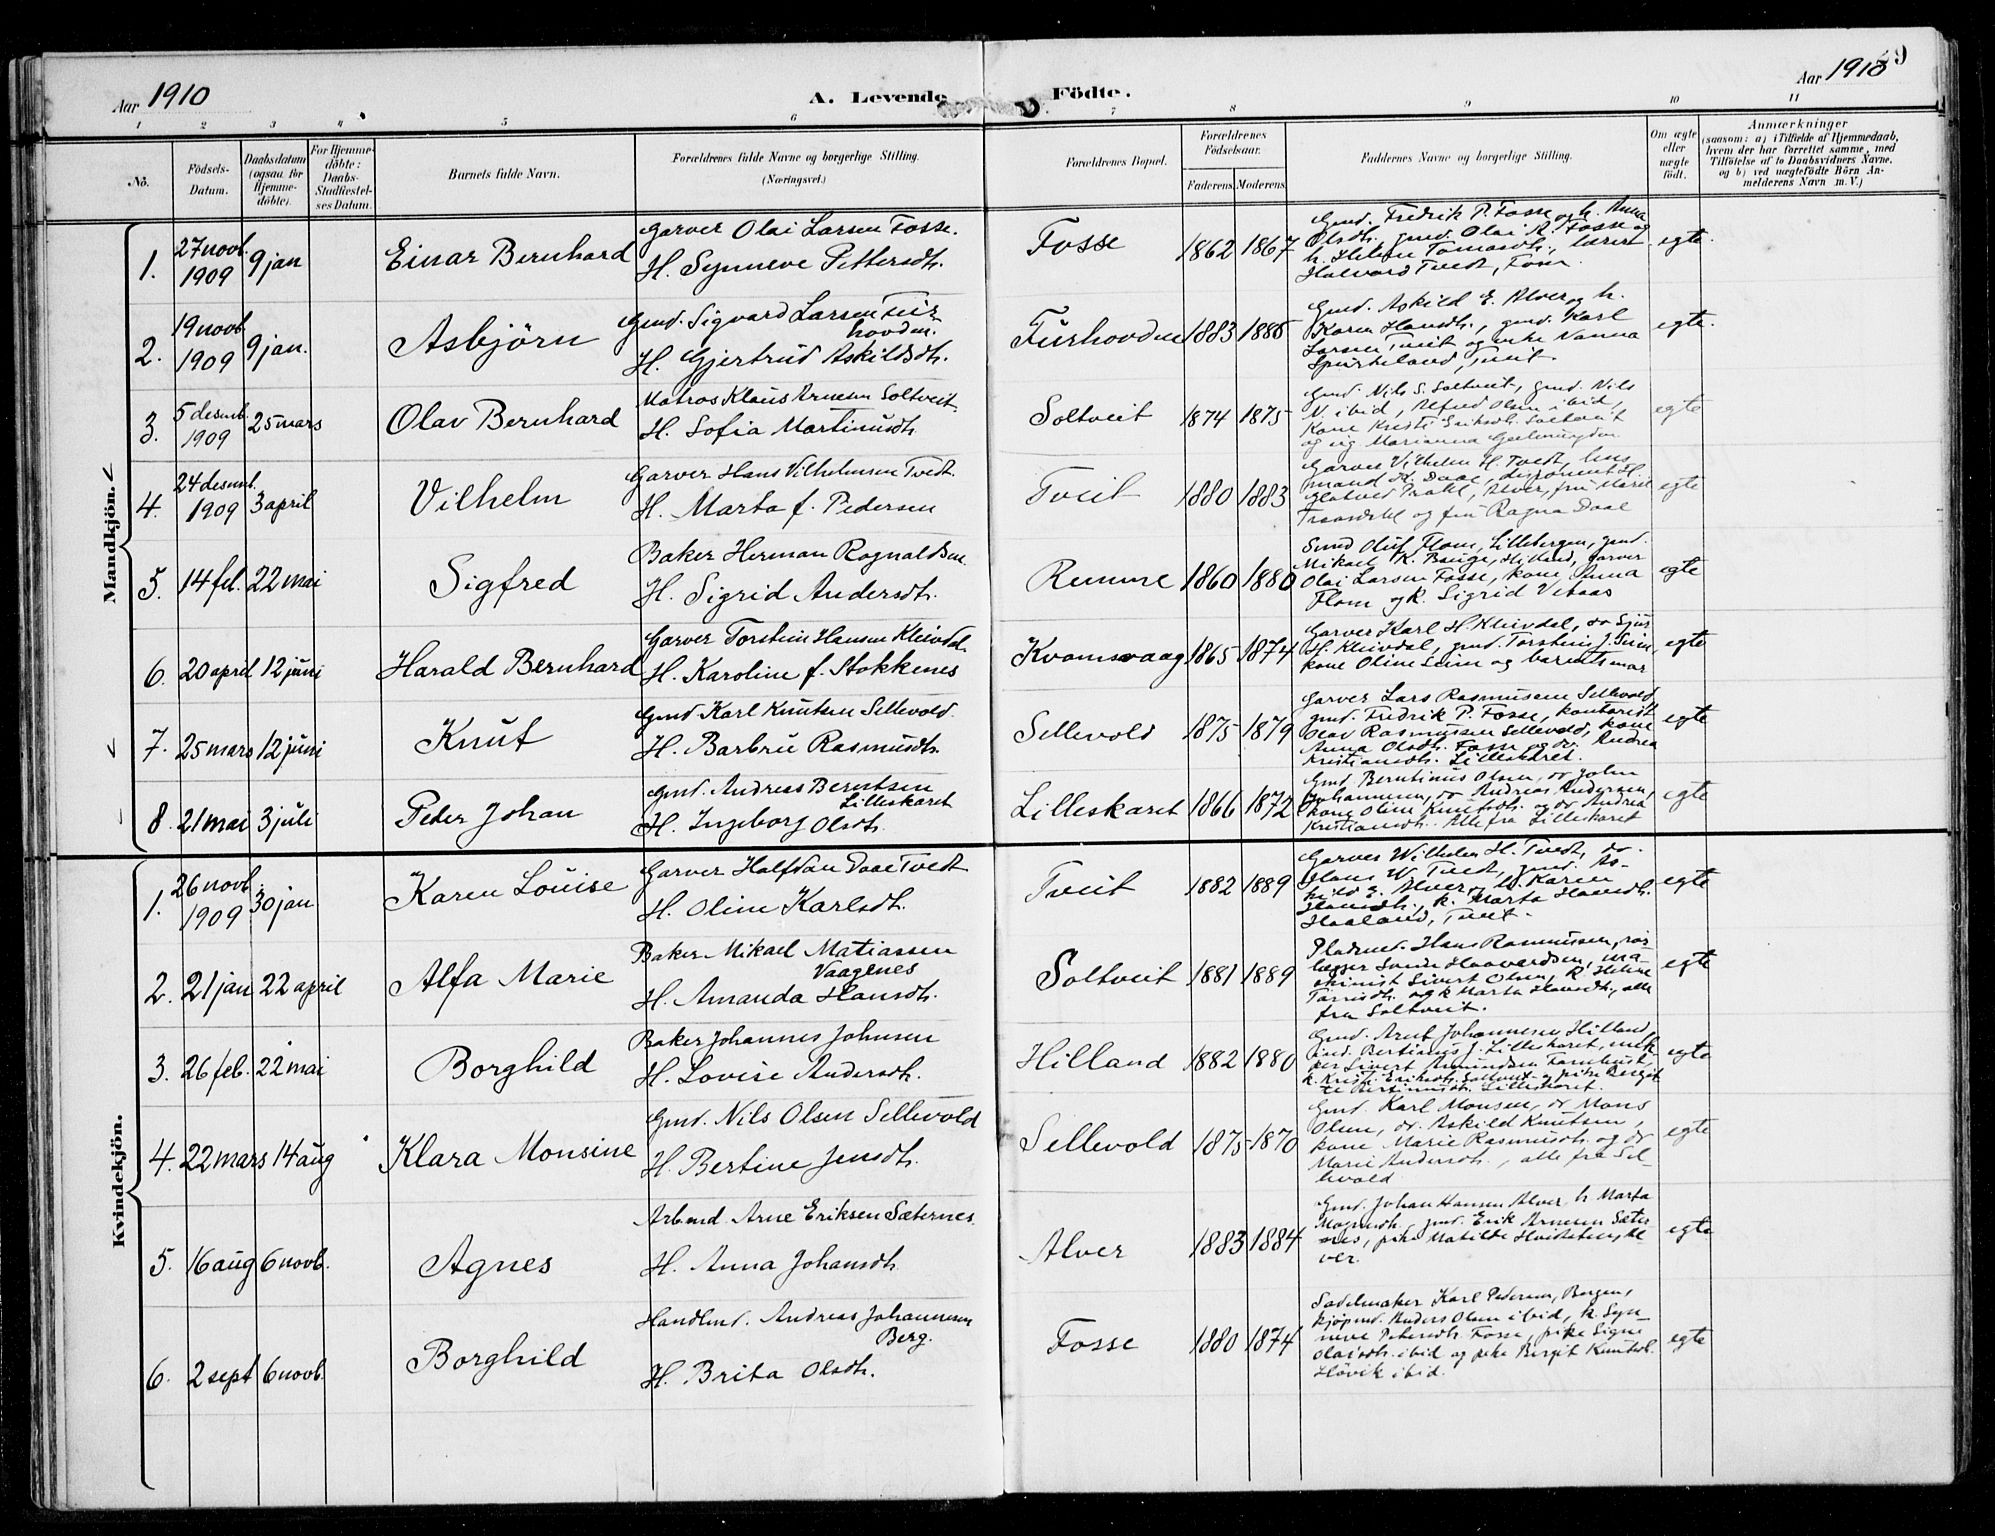 Aar 1910
A. Levende Födte.
Aar 1910
29
1 2 3 4 5 6 7 8 9 10 11
No.
Födsels-Datum.
Daabsdatum (ogsaa for Hjemme-döbte).
For Hjemme-döbte: Daabs-Stadfæstel-ses Datum.
Barnets fulde Navn.
Forældrenes fulde Navne og borgerlige Stilling.
(Næringsvei.)
Forældrenes Bopæl.
Forældrenes Födselsaar.
Faderens Moderens
Faddernes Navne og borgerlige Stilling.
Om ægte eller uægte födt.
Anmærkninger
(saasom: a) i Tilfælde af Hjemmedaab,
hvem der har forrettet samme, med
Tilföielse af to Daabsvidners Navne,
og b) ved uægtefödte Börn An-
melderens Navn m. V.)
Mandkjön.
1. 27 novb. 1909 9 jan Einar Bernhard
Garver Olai Larsen Fosse.
H. Synneve Pettersdtr.
Fosse 1862 1867
Gmd. Fredrik P. Fosse og h. Anna
Olsdtr. gmd. Olai A. Fosse og
Halvard Tveit, Fosse.
egte.
2. 19 novb 1909 9 jan. Asbjörn
Gmd. Sigvard Larsen
H. Gjertrud Askildsdtr.
1883
Gmd. Askild E. Alver og h.
Karen Hansdtr., gmd. Karl
Larsen Tveit og pike Nanna
Spurkeland, Tveit.
egte.
3. 5 desmb. 1909 25 mars Olav Bernhard
Matros Klaus Arnesen Soltveit
H. Sofia Martinusdtr.
Soltveit 1874 1875
Gmd. Nils S. Soltveit, gmd. Nils
N. ibid, Alfred Olsen ibid,
Kone Kristi Eriksdtr. Soltveit
egte
4. 24 desmb. 1909 3 april Vilhelm
Garver Hans Vilhelmsen Tvedt.
H. Marta f. Pedersen
Tveit 1880 1883
Garver Vilhelm H. Tvedt, hus
mand K. Daae,
og fru Ragna Daae
egte
5. 14 feb. 22 mai Sigfred
Baker Herman Ragnaldsen.
H. Sigrid Andersdtr.
Remme 1860 1880
Smed Oluf Flom, Lillebergen, gmd.
Mikael K. Bauge, Hilland, garver
Olai Larsen Fosse, kone Anna
Flom og k. Sigrid Vetaas
egte
6. 20 april 12 juni Harald Bernhard
Garver Torstein Hansen Kleivdal.
H. Karoline f. Stokkenes
Kvamsvaag 1865 1874
Garver Karl H. Kleivdal, do Sjur
H. Kleivdal, gmd. Torstein J. Seim,
kone Oline Seim og barnets mor
egte
7. 25 mars 12 juni Knut
Gmd Karl Knutsen Sellevold.
H. Barbru Rasmusdtr.
Sellevold 1875 1879
Garver Lars Rasmussen Sellevold,
gmd. Fredrik P. Fosse, kontorist
Olav Rasmussen Sellevold, kone
Anna Olsdtr. Fosse og do. Andrea
Kristiansdtr. Lilleskaret.
egte
8. 21 mai 3 juli Peter Johan
Gmd. Andreas Berntsen
Lilleskaret
H. Ingeborg Olsdtr.
Lilleskaret 1866 1872
Gmd. Berntinus Olsen, do John
Johannesen, do Andreas Andersen,
kone Oline Knutsdtr. og do Andrea
Kristiansdtr. Alle fra Lilleskaret
egte
Kvindekjön.
1. 26 novb. 1909 30 jan Karen Louise
Garver Halfdan Daae Tvedt
H. Oline Karlsdtr.
Tveit 1882 1889
Garver Wilhelm H. Tvedt, do.
Hans W. Tvedt, gmd. As-
kild E. Alver, h. Karen
Hansdtr., k. Marta Hansdtr.
Haaland, Tveit.
egte
2. 21 jan 22 april Alfa Marie
Baker Mikael Matiassen
Vaagenes
H. Amanda Hansdtr.
Soltveit 1881 1889
Pladsmd. Hans Rasmussen, rör-
lægger Haavardsen, ma-
skinist Sivert Olsen, k. Helene
og k Marta Hansdtr., alle
fra Soltveit.
egte
3. 26 feb. 22 mai Borghild
Baker Johannes Johnsen
H. Lovise Andersdtr.
Hilland 1882 1880
Gmd. Arnt Johannesen Hilland,
k. Kristi Eriksdtr. Soltveit og pike Bergit
Lilleskaret.
egte
4. 22 mars 14 aug Klara Monsine
Gmd. Nils Olsen Sellevold
H. Bertine Jensdtr.
Sellevold 1875 1870
Gmd. Karl Monsen, do Mons
Olsen, do. Askild Knutsen,
kone Marie Rasmusdtr. og do
Marie Andersdtr., alle fra Sel-
levold
egte
5. 16 aug 6 novb. Agnes
Arbmd. Arne Eriksen Sæternes.
H. Anna Johansdtr.
Alver 1883 1884
Gmd. Johan Hansen Alver h Marta
Magnusdtr. gmd. Erik Arnesen Sæter-
nes, pike Matilde Al-
ver.
egte
6. 2 sept 6 novb. Borghild
Handlmd. Andreas Johannesen
Berg.
H. Brita Olsdtr.
Fosse 1880 1874
Sadelmaker Karl Pedersen, Bergen,
kjöpmd. Anders Olsen ibid, k. Syn-
neve Petersdtr. Fosse, pike Signe
Olaisdtr. ibid og pike Bergit Knutsdtr.
Hövik ibid.
egte